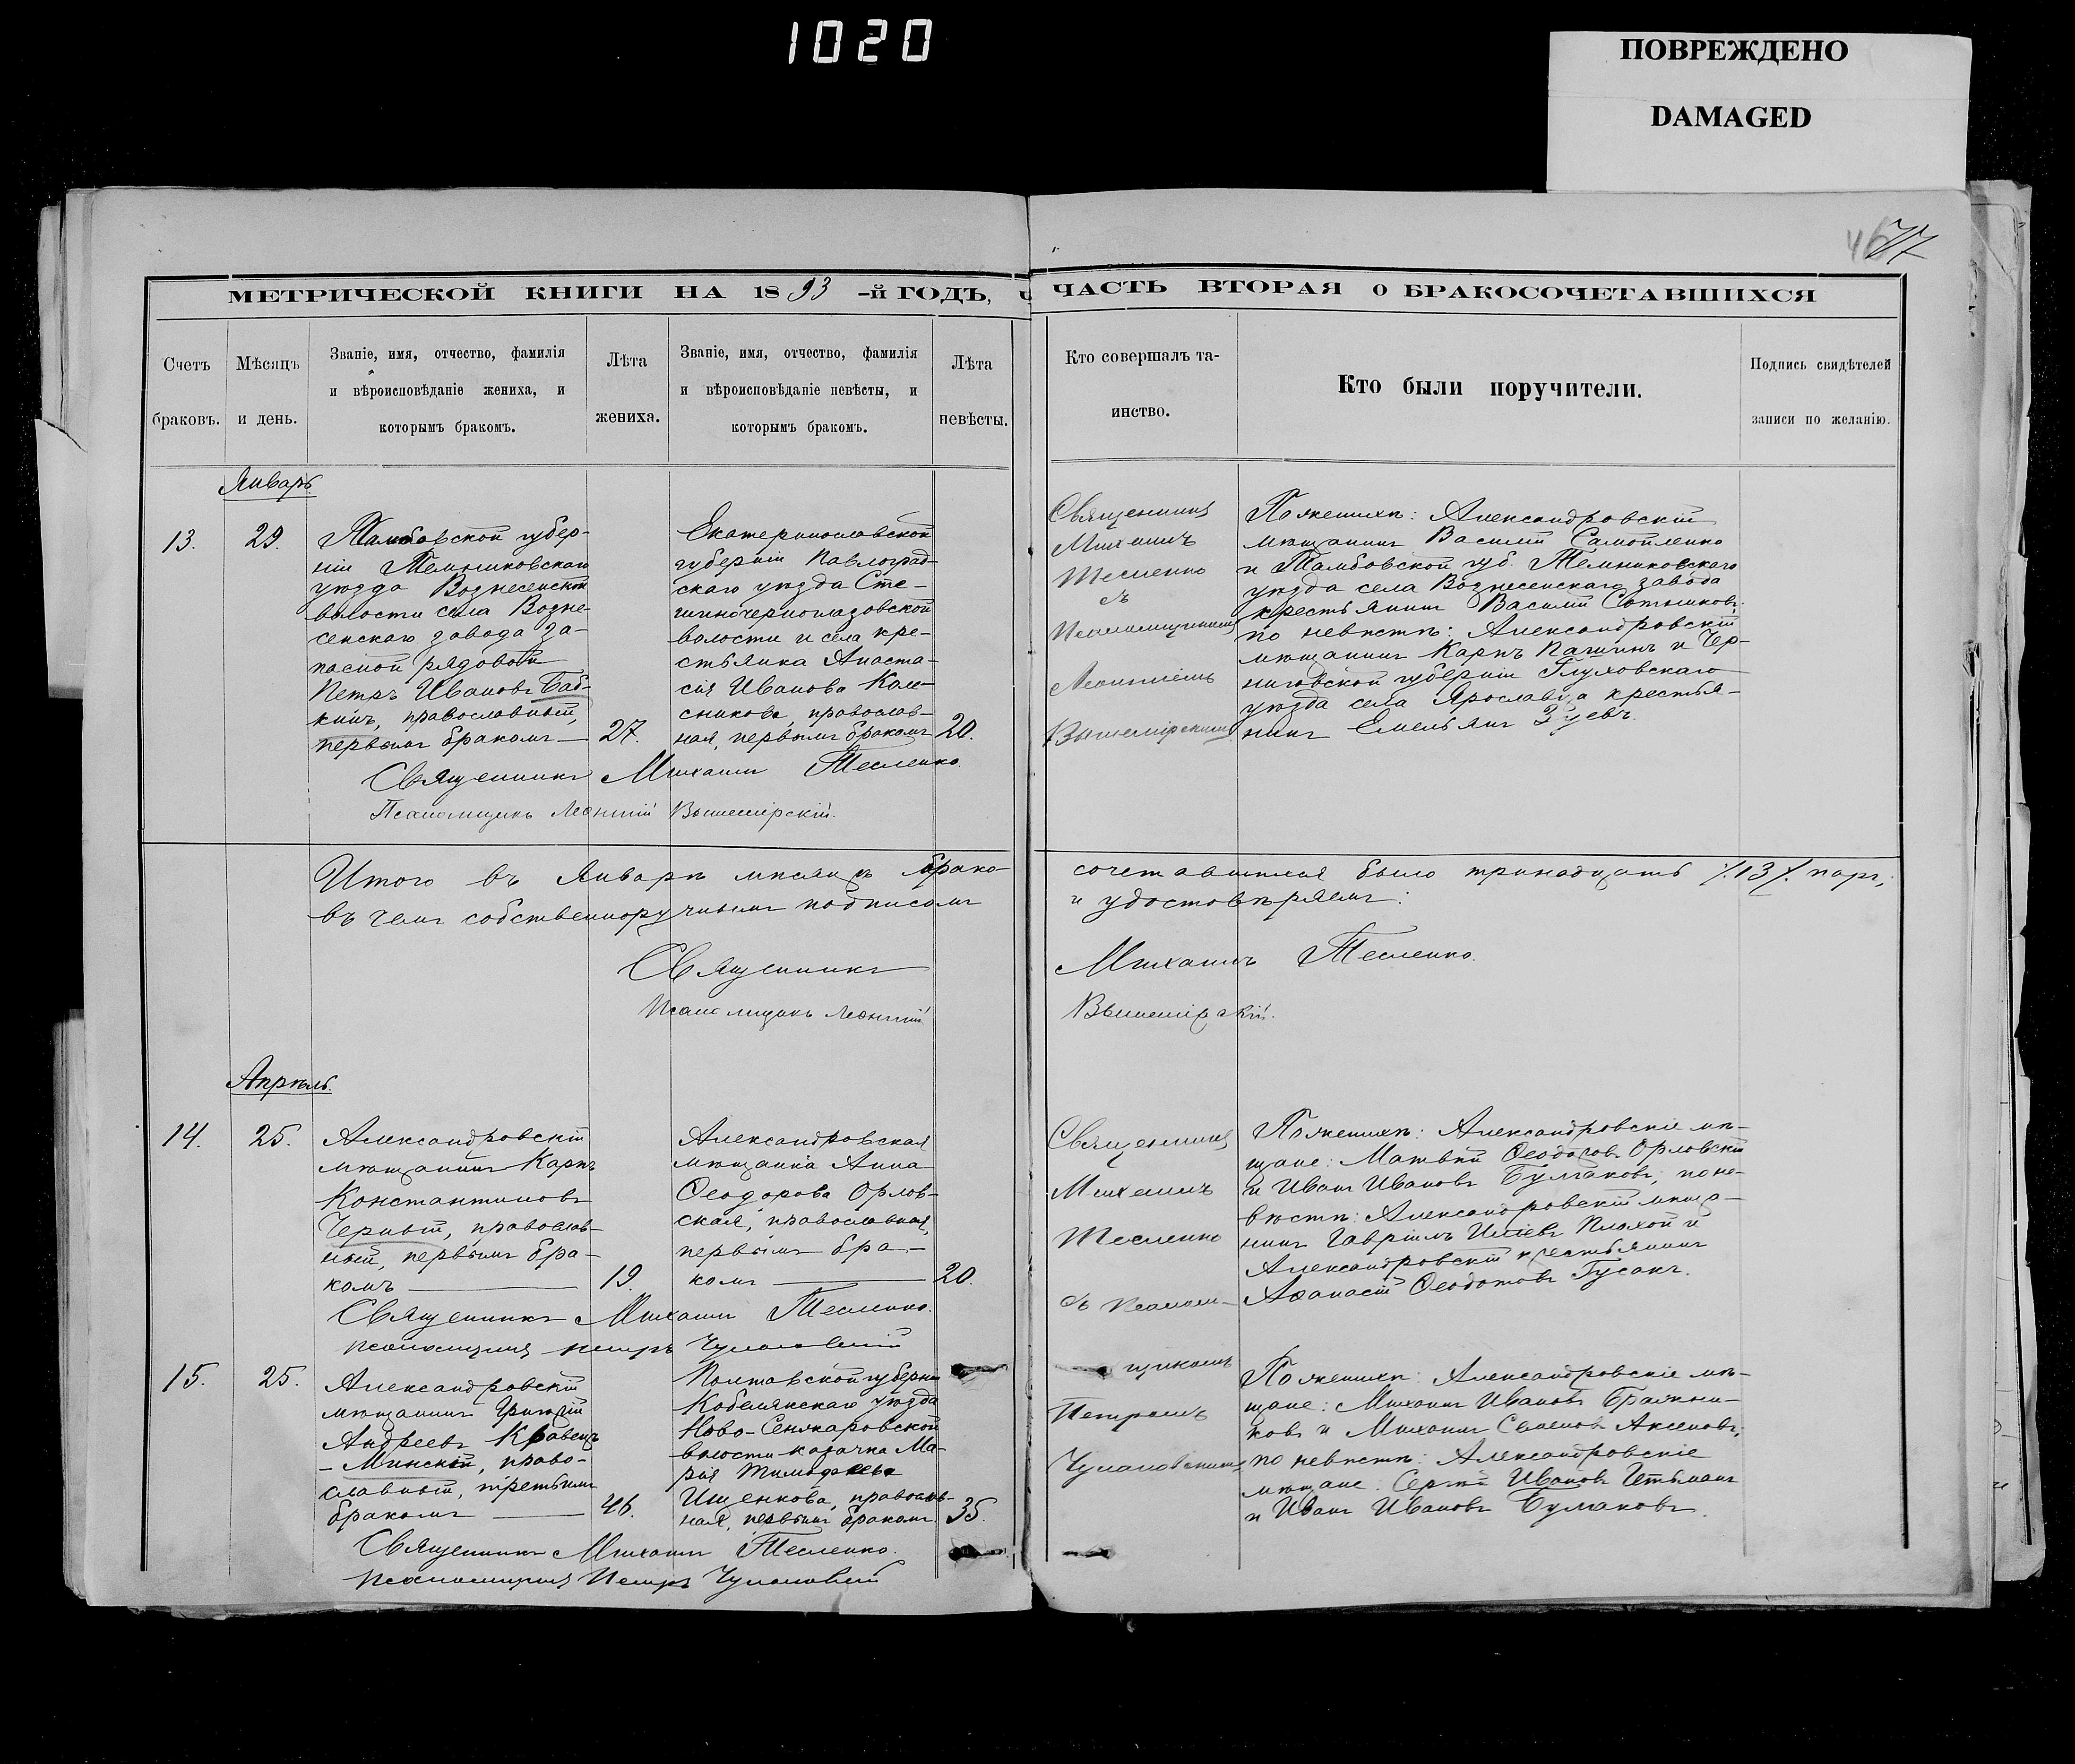 1020
ПОВРЕЖДЕНО
DAMAGED
46
77
МЕТРИЧЕСКОЙ КНИГИ НА 1893-й ГОДЪ, ЧАСТЬ ВТОРАЯ О БРАКОСОЧЕТАВШИХСЯ
Счетъ браковъ.
Мѣсяцъ и день.
Званіе, имя, отчество, фамилія
и вѣроисповѣданіе жениха, и
которымъ бракомъ.
Лѣта жениха.
Званіе, имя, отчество, фамилія
и вѣроисповѣданіе невѣсты, и
которымъ бракомъ.
Лѣта невѣсты.
Кто совершалъ та-
инство.
Кто были поручители.
Подпись свидѣтелей
записи по желанію.
Январь
13.
29.
Тамбовской губер-
ніи Темниковскаго
уѣзда Вознесенской
волости села Возне-
сенскаго завода за-
пасной рядовой
Петръ Ивановъ Баб-
кинъ, православный,
первымъ бракомъ
27.
Екатеринославской
губерніи Павлоград-
скаго уѣзда Сте-
волости и села кре-
стьянка Анаста-
сія Иванова Коле-
сникова, православ-
ная, первымъ бракомъ
20.
Священникъ
Михаилъ
Тесленко
съ
Псаломщикомъ
Леонтіемъ
Вышемірскимъ
По женихѣ: Александровскій
мѣщанинъ Василій Самойленко
и Тамбовской губ. Темниковскаго
уѣзда села Вознесенскаго завода
крестьянинъ Василій Сотниковъ;
по невѣстѣ: Александровскій
мѣщанинъ Карпъ Пашинъ и Чер-
ниговской губерніи Глуховскаго
уѣзда села Ярославца крестья-
нинъ Емельянъ Зуевъ.
Священникъ Михаилъ Тесленко.
Псаломщикъ Леонтій Вышемірскій.
Итого въ Январѣ мѣсяцѣ брако-
сочетавшихся было тринадцать /.13/. паръ;
въ чемъ собственноручнымъ подписомъ
и удостовѣряемъ:
Священникъ Михаилъ Тесленко.
Псаломщикъ Леонтій Вышемірскій.
Апрѣль.
14.
25.
Александровскій
мѣщанинъ Карпъ
Константиновъ
Черный, православ-
ный, первымъ бра-
комъ
19.
Александровская
мѣщанка Анна
Ѳеодорова Орлов-
ская, православная,
первымъ бра-
комъ
20.
Священникъ
Михаилъ
Тесленко
съ Псалом-
щикомъ
Петромъ
По женихѣ: Александровскіе мѣ-
щане: Матвѣй Ѳеодоровъ Орловскій
и Иванъ Ивановъ Булгаковъ; по не-
вѣстѣ: Александровскій мѣща-
нинъ Гавріилъ Иліевъ Плохой и
Александровскій крестьянинъ
Аѳанасій Ѳеодотовъ Гусакъ.
Священникъ Михаилъ Тесленко.
Псаломщикъ Петръ
15.
25.
Александровскій
мѣщанинъ Григорій
Андреевъ Кравецъ
-Минскій, право-
славный, третьимъ
бракомъ
46.
Полтавской губерніи
Кобелякскаго уѣзда
Ново-Сенжаровской
волости козачка Ма-
рія Тимофеева
Ищенкова, православ-
ная, первымъ бракомъ
35.
По женихѣ: Александровскіе мѣ-
щане: Михаилъ Ивановъ Бражни-
ковъ и Михаилъ Аксеновъ;
по невѣстѣ: Александровскіе
мѣщане: Сергѣй Ивановъ Гетьманъ
и Иванъ Ивановъ Булгаковъ.
Священникъ Михаилъ Тесленко.
Псаломщикъ Петръ